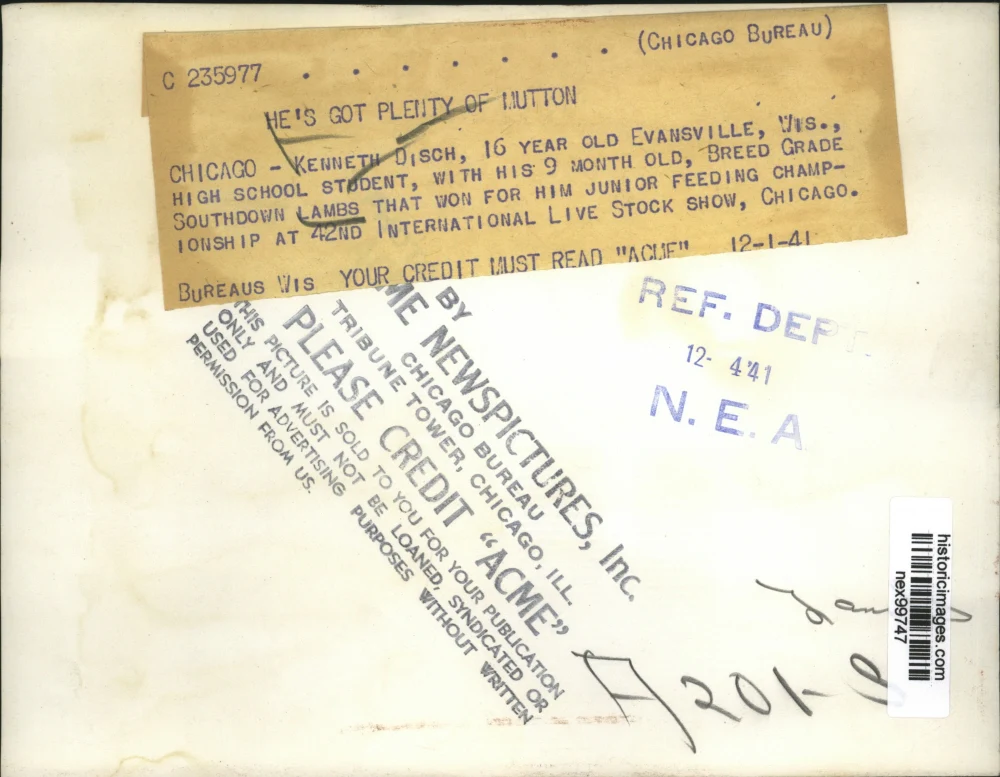 C 235977 . . . . . . (CHICAGO BUREAU)
HE'S GOT PLENTY OF MUTTON
CHICAGO - KENNETH DISCH, 16 YEAR OLD EVANSVILLE, WIS.,
HIGH SCHOOL STUDENT, WITH HIS 9 MONTH OLD, BREED GRADE
SOUTHDOWN LAMBS THAT WON FOR HIM JUNIOR FEEDING CHAMP-
IONSHIP AT 42ND INTERNATIONAL LIVE STOCK SHOW, CHICAGO.
BUREAUS WIS YOUR CREDIT MUST READ "ACME" 12-1-41
BY
ME NEWSPICTURES, Inc.
CHICAGO BUREAU
TRIBUNE TOWER, CHICAGO, ILL.
PLEASE CREDIT "ACME"
THIS PICTURE IS SOLD TO YOU FOR YOUR PUBLICATION
ONLY AND MUST NOT BE LOANED, SYNDICATED OR
USED FOR ADVERTISING PURPOSES WITHOUT WRITTEN
PERMISSION FROM US.
REF. DEPT.
12- 4'41
N. E. A
historicimages.com
nex99747